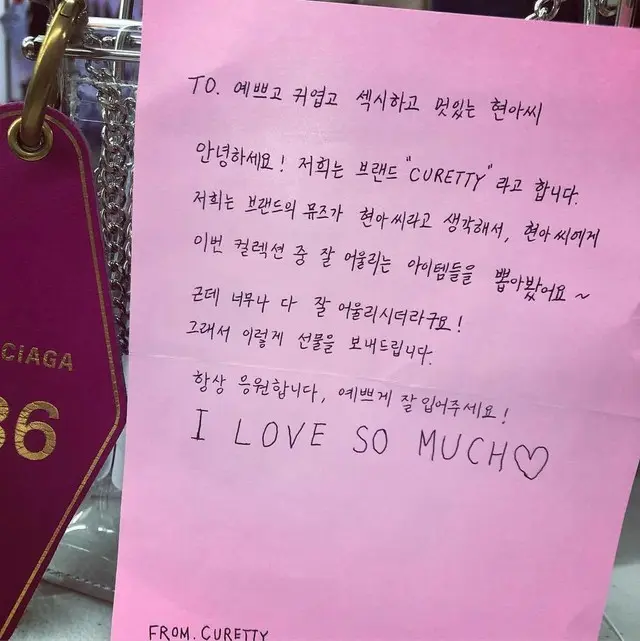 TO. 예쁘고 귀엽고 섹시하고 멋있는 현아씨
안녕하세요! 저희는 브랜드 "CURETTY" 라고 합니다.
저희는 브랜드의 뮤즈가 현아씨라고 생각해서, 현아씨에게
이번 컬렉션 중 잘 어울리는 아이템들을 뽑아봤어요~
근데 너무나 다 잘 어울리시더라구요!
그래서 이렇게 선물을 보내드립니다.
항상 응원합니다, 예쁘게 잘 입어주세요!
I LOVE SO MUCH♡
FROM. CURETTY
CIAGA
36